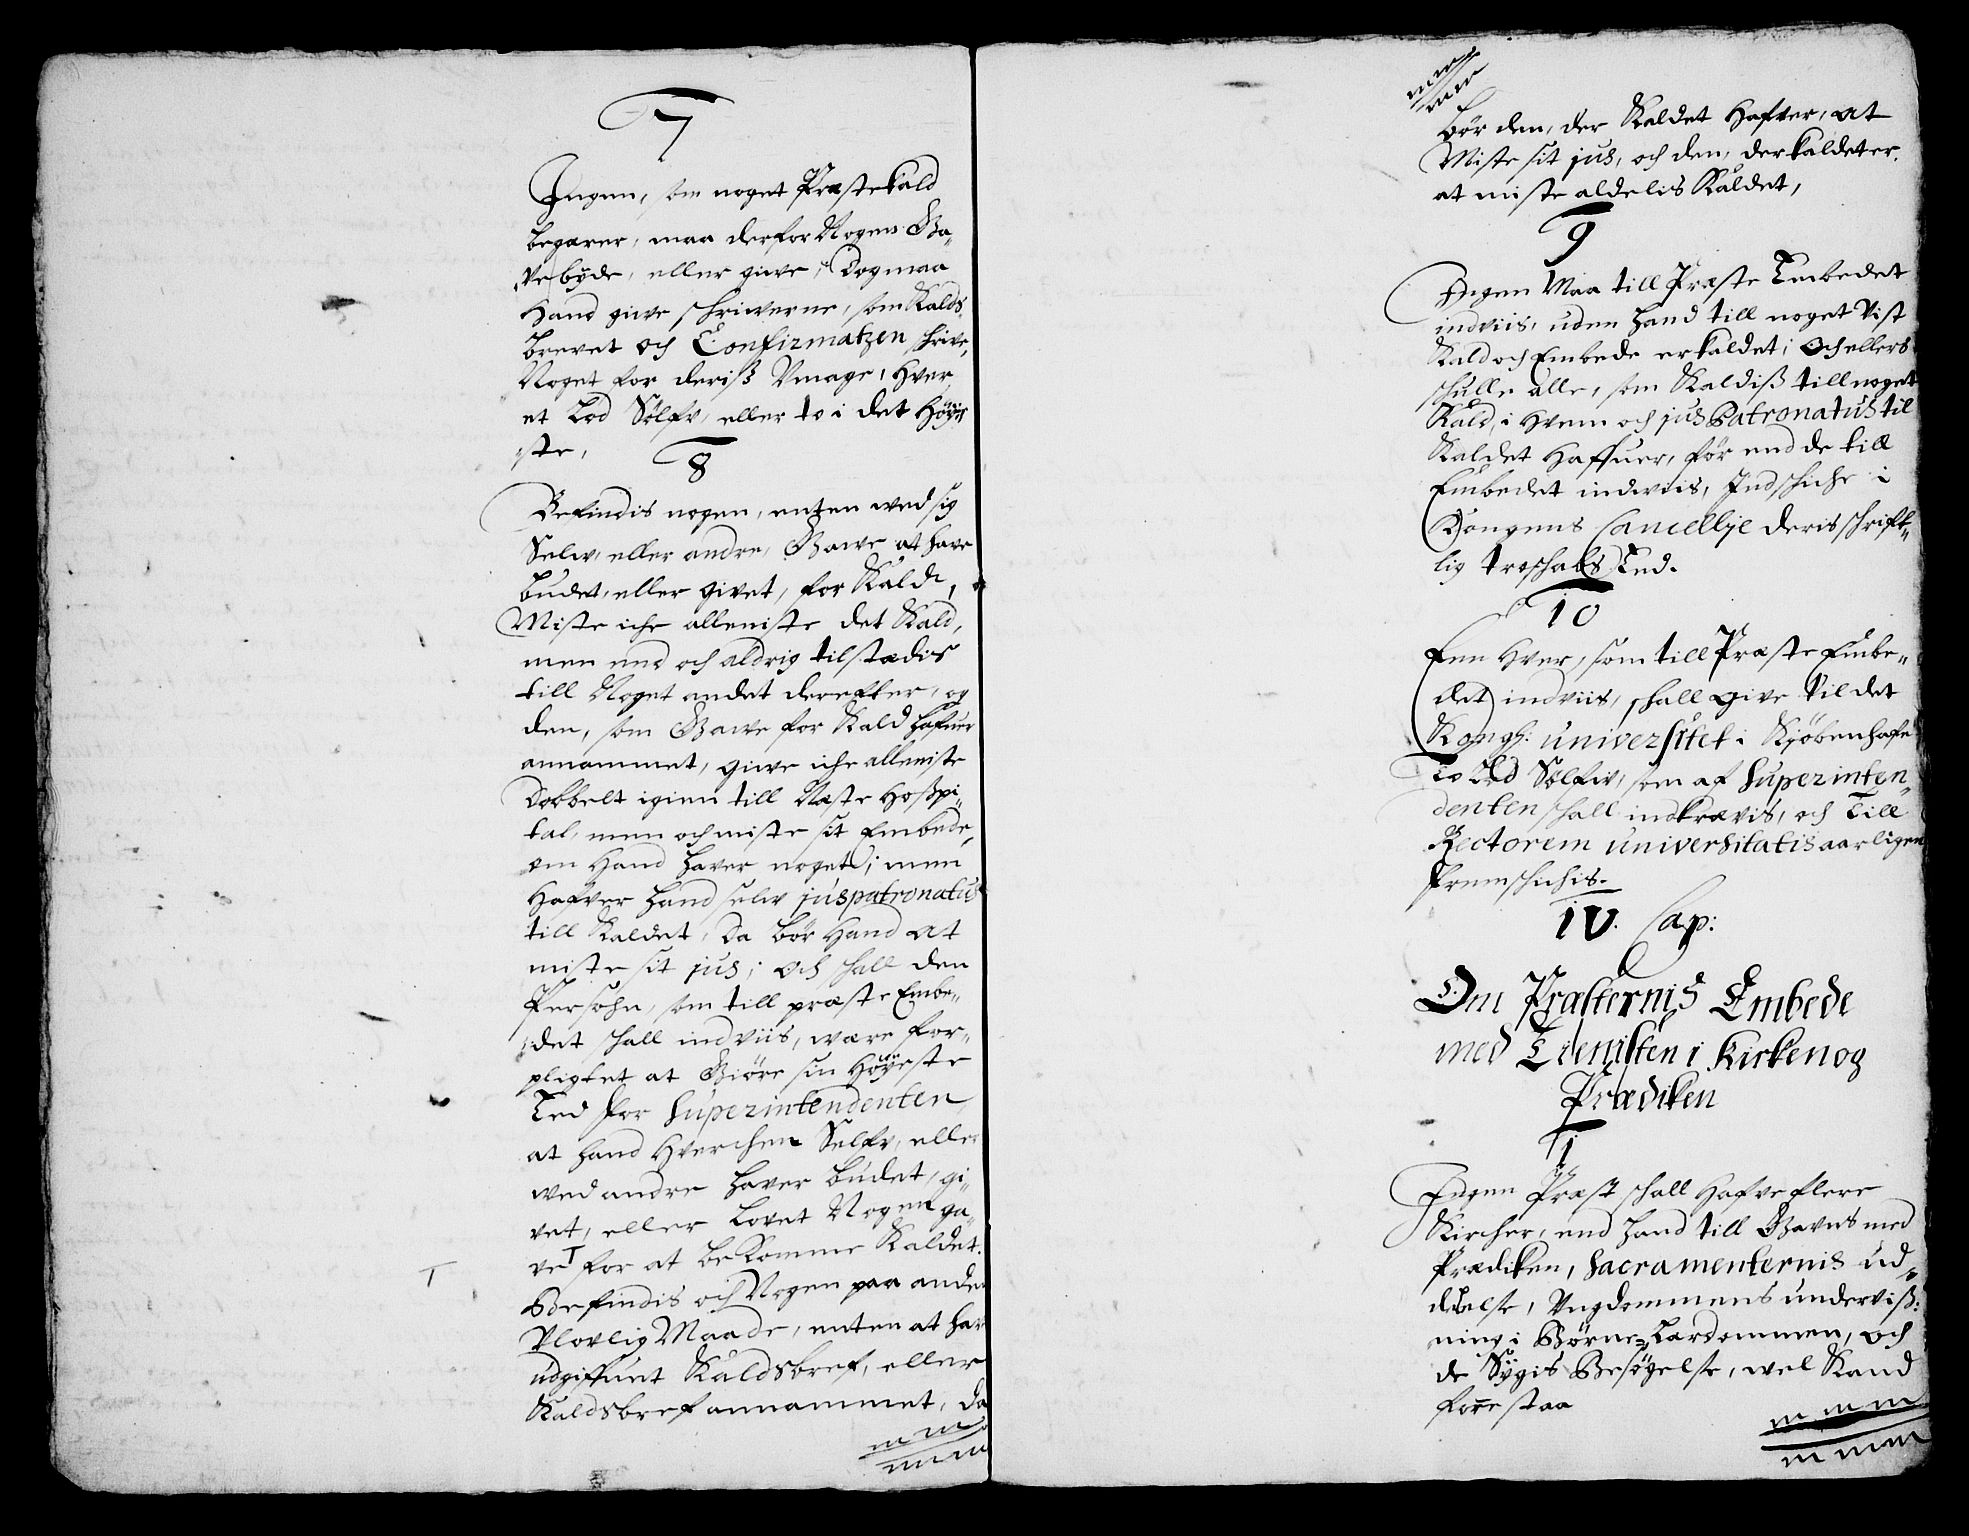 7
Ingen, som noget Præstekald
begærer, maa derfor Nogen Ga-
ve byde, eller give, Dog maa
Hand give schriverne, som Kalds
brevet och Confirmatzen schrive,
Noget for deriß Vmage, Hver
et Lod Sølfv, eller to i det Høyi
ste,
8
Befindis nogen, enten ved sig
Selv, eller andre, Gawe at have
budet, eller givet, for Kald,
Miste iche alleniste det Kald,
men end och aldrig tilstædis
till Noget andet derefter, og
den, som Gawe for Kald hafuer
annammet, give iche alleniste
Dobbelt igien till Næste Hoßpi-
tal, men och miste sit Embede,
om Hand haver noget; men
Hafver Hand selv juspatronatus
till Kaldet, Da bør Hand at
miste sit jus; och schall den
Persohn, som till præste Embe-
det schall indviis, være for-
pligtet at Giöre sin Höyeste
Eed for Superintendenten,
at Hand Hverchen Selfv, eller
wed andre haver budet, gi-
vet, eller lovet Nogen ga-
ve T for at bekomme Kaldet.
T
Befindis och Nogen paa anden
Vlovlig Maade, enten at have
udgifuet Kaldsbref, eller
Kaldsbref annammet, da
bör den, der Kaldet Hafver, at
Miste sit jus, och den, der kaldet er,
at miste aldelis Kaldet,
9
Ingen Maa till Præste Embedet
indviis, uden Hand till noget Vist
Kald och Embede er kaldet; Och ellers
schulle alle, som Kaldiß till noget
Kald, i Hvem och jus Patronatus til
Kaldet Haffuer, för end de till
Embedet indviis, Indschiche i
Kongens Cancellje deris schrift-
lig troschabs Eed.
10
Een Hver, som till Præste Embe-
det indviis, schall give til det
Kongl: universitet i Kjöbenhafn
To Lod Sølfv, som af Superinten-
denten schall indkrævis, och Till
Rectorem universitatis aarligen
fremschichis.
IV. Cap:
Om Præsternis Embede
med Tienisten i Kirken og
Prædiken
1
Ingen Præst schall Hafve flere
Kircher, end Hand till Gavns med
Prædiken, Sacramenternis ud-
deelse, Vngdommens underviß-
ning i Börne-Lærdommen, och
de Sÿgis Besögelse, wel Kand
forestaa